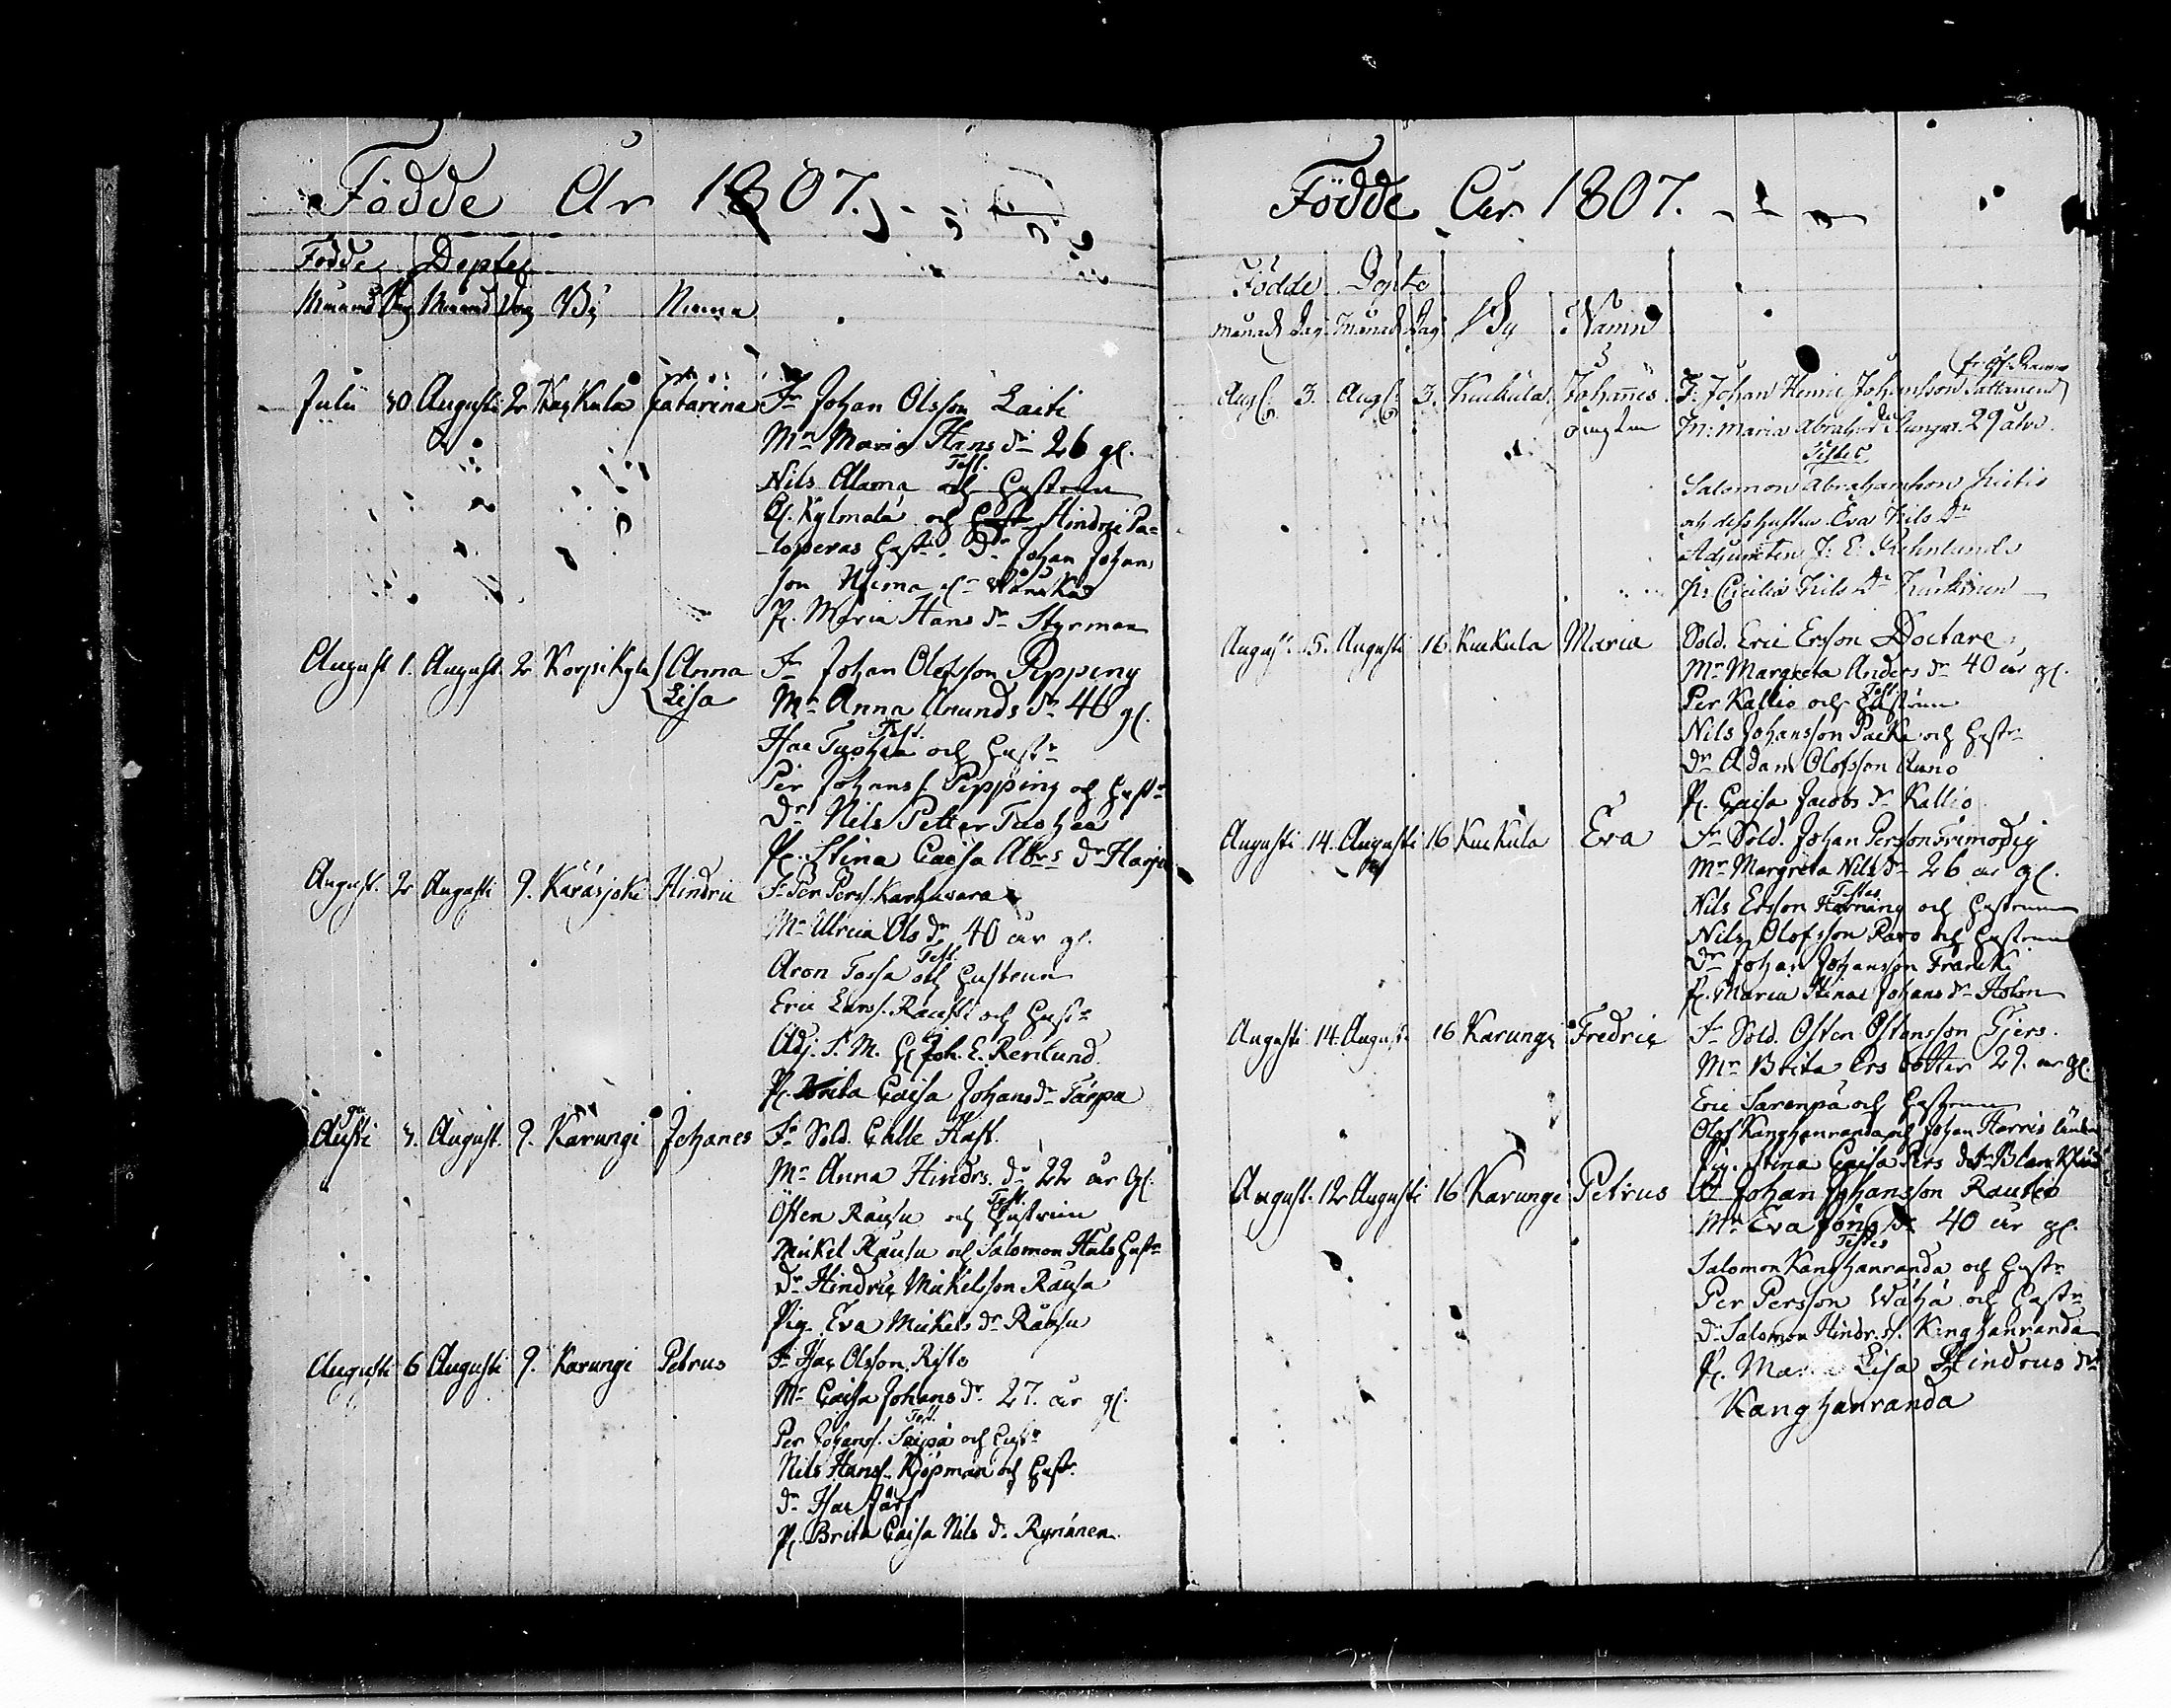 Födde År 1807.
Födde Döpte
Månad Dag Månad Dag By Namn
Julii 30 Augusti 2 Kuckula Catarina Fr Johan Olsson Laiti
Mr Maria Hans dr 26 gl.
Test.
Nils Alama och Hustrun
Ol. Kylmälä och Hust Hindric Pa=
loperas Hustr. Dr Johan Johans
son Niema
P. Maria Hans dr Styrman
August 1. August. 2 Korpikylä Anna Fr Johan Olofsson Pipping
Lisa Mr Anna Anunds dr 46 gl.
Test.
Isac Tuohea och Hustr
Per Johanss. Pipping och Hustr
Dr Nils Petter Tuohea
P. Stina Caisa Abrs dr Harju
August. 2 Augusti 9. Karäsjoki Hindric Fr Per Perss. Karhuvara
Mr Ulrica Ols dr 40 år gl.
Test.
Aron Tossa och Hustrun
Eric Larss. Rautio och Hustr
Adj. S. M. Joh. E. Renlund.
P. Brita Caisa Johans dr Tärpä
Augusti 3. August. 9. Karungi Johanes Fr Sold. Calle Hast.
Mr Anna Hindrs. dr 22 år gl.
Test.
Östen Rausu och Hustrun
Mickel Rausu och Salomon Hals Hustr
Dr Hindric Mickelsson Rausu
Pig. Eva Mickels dr Rausu
Augusti 6 Augusti 9. Karungi Petrus Fr Isac Olsson Risto
Mr Caisa Johans dr 27. år gl.
Test.
Per Johanss. Seipä och Hustr
Nils Hanss. Kjöpman och Hustr.
dr Isac Järf
P. Brita Caisa Nils dr Rynänen
Födde År 1807.
Födde Döpte
månad Dag Månad Dag By Namn
Aug. 3. Aug. 3. Kuckula Johannes F: Johan Henric Johansson Lattanen
M: Maria Abrah. dr 29 år.
Testes
Salomon Abrahamsson
och dess hustru Eva Nils dr
Adjuncten J: E: Rehnlund
P: Cecilia Nils dr Kurkinen
August. 15. Augusti 16. Kuckula Maria Sold. Eric Ersson Doctare
Mr Margreta Anders dr 40 år gl.
Test.
Per Kallio och Hustrun
Nils Johansson Packa och Hustr
Dr Adam Olofsson Auno
P. Caisa Jacobs dr Kallio
Augusti 14. Augusti 16 Kuckula Eva Fr Sold. Johan Persson Frimodig
Mr Margreta Nils dr 26 år gl.
Testes
Nils Ersson Harning och Hustrun
Nils Olofsson Raro och Hustrun
Dr Johan Johansson Francki
P. Maria Stina Johans dr Holm
Augusti 14. August 16 Karungi Fredric Fr Sold. Osten Ostensson Gjers.
Mr Brita Ers dotter 29. år gl.
Eric Sarenpä och Hustrun
Olof Kanghanranda och Johan Harris
Pig. Stina Caisa Pers dotr
August. 12 Augusti 16 Karungi Petrus Fr Johan Johansson Rautio
Mr Eva Jöns dr 40 år gl.
Testes
Salomon Kanghanranda och Hustr
Per Persson Wähä och Hustr
dr Salomon Hindr. ss. Kanghanranda
P. Maria Lisa Hindrus dr
Kanghanranda